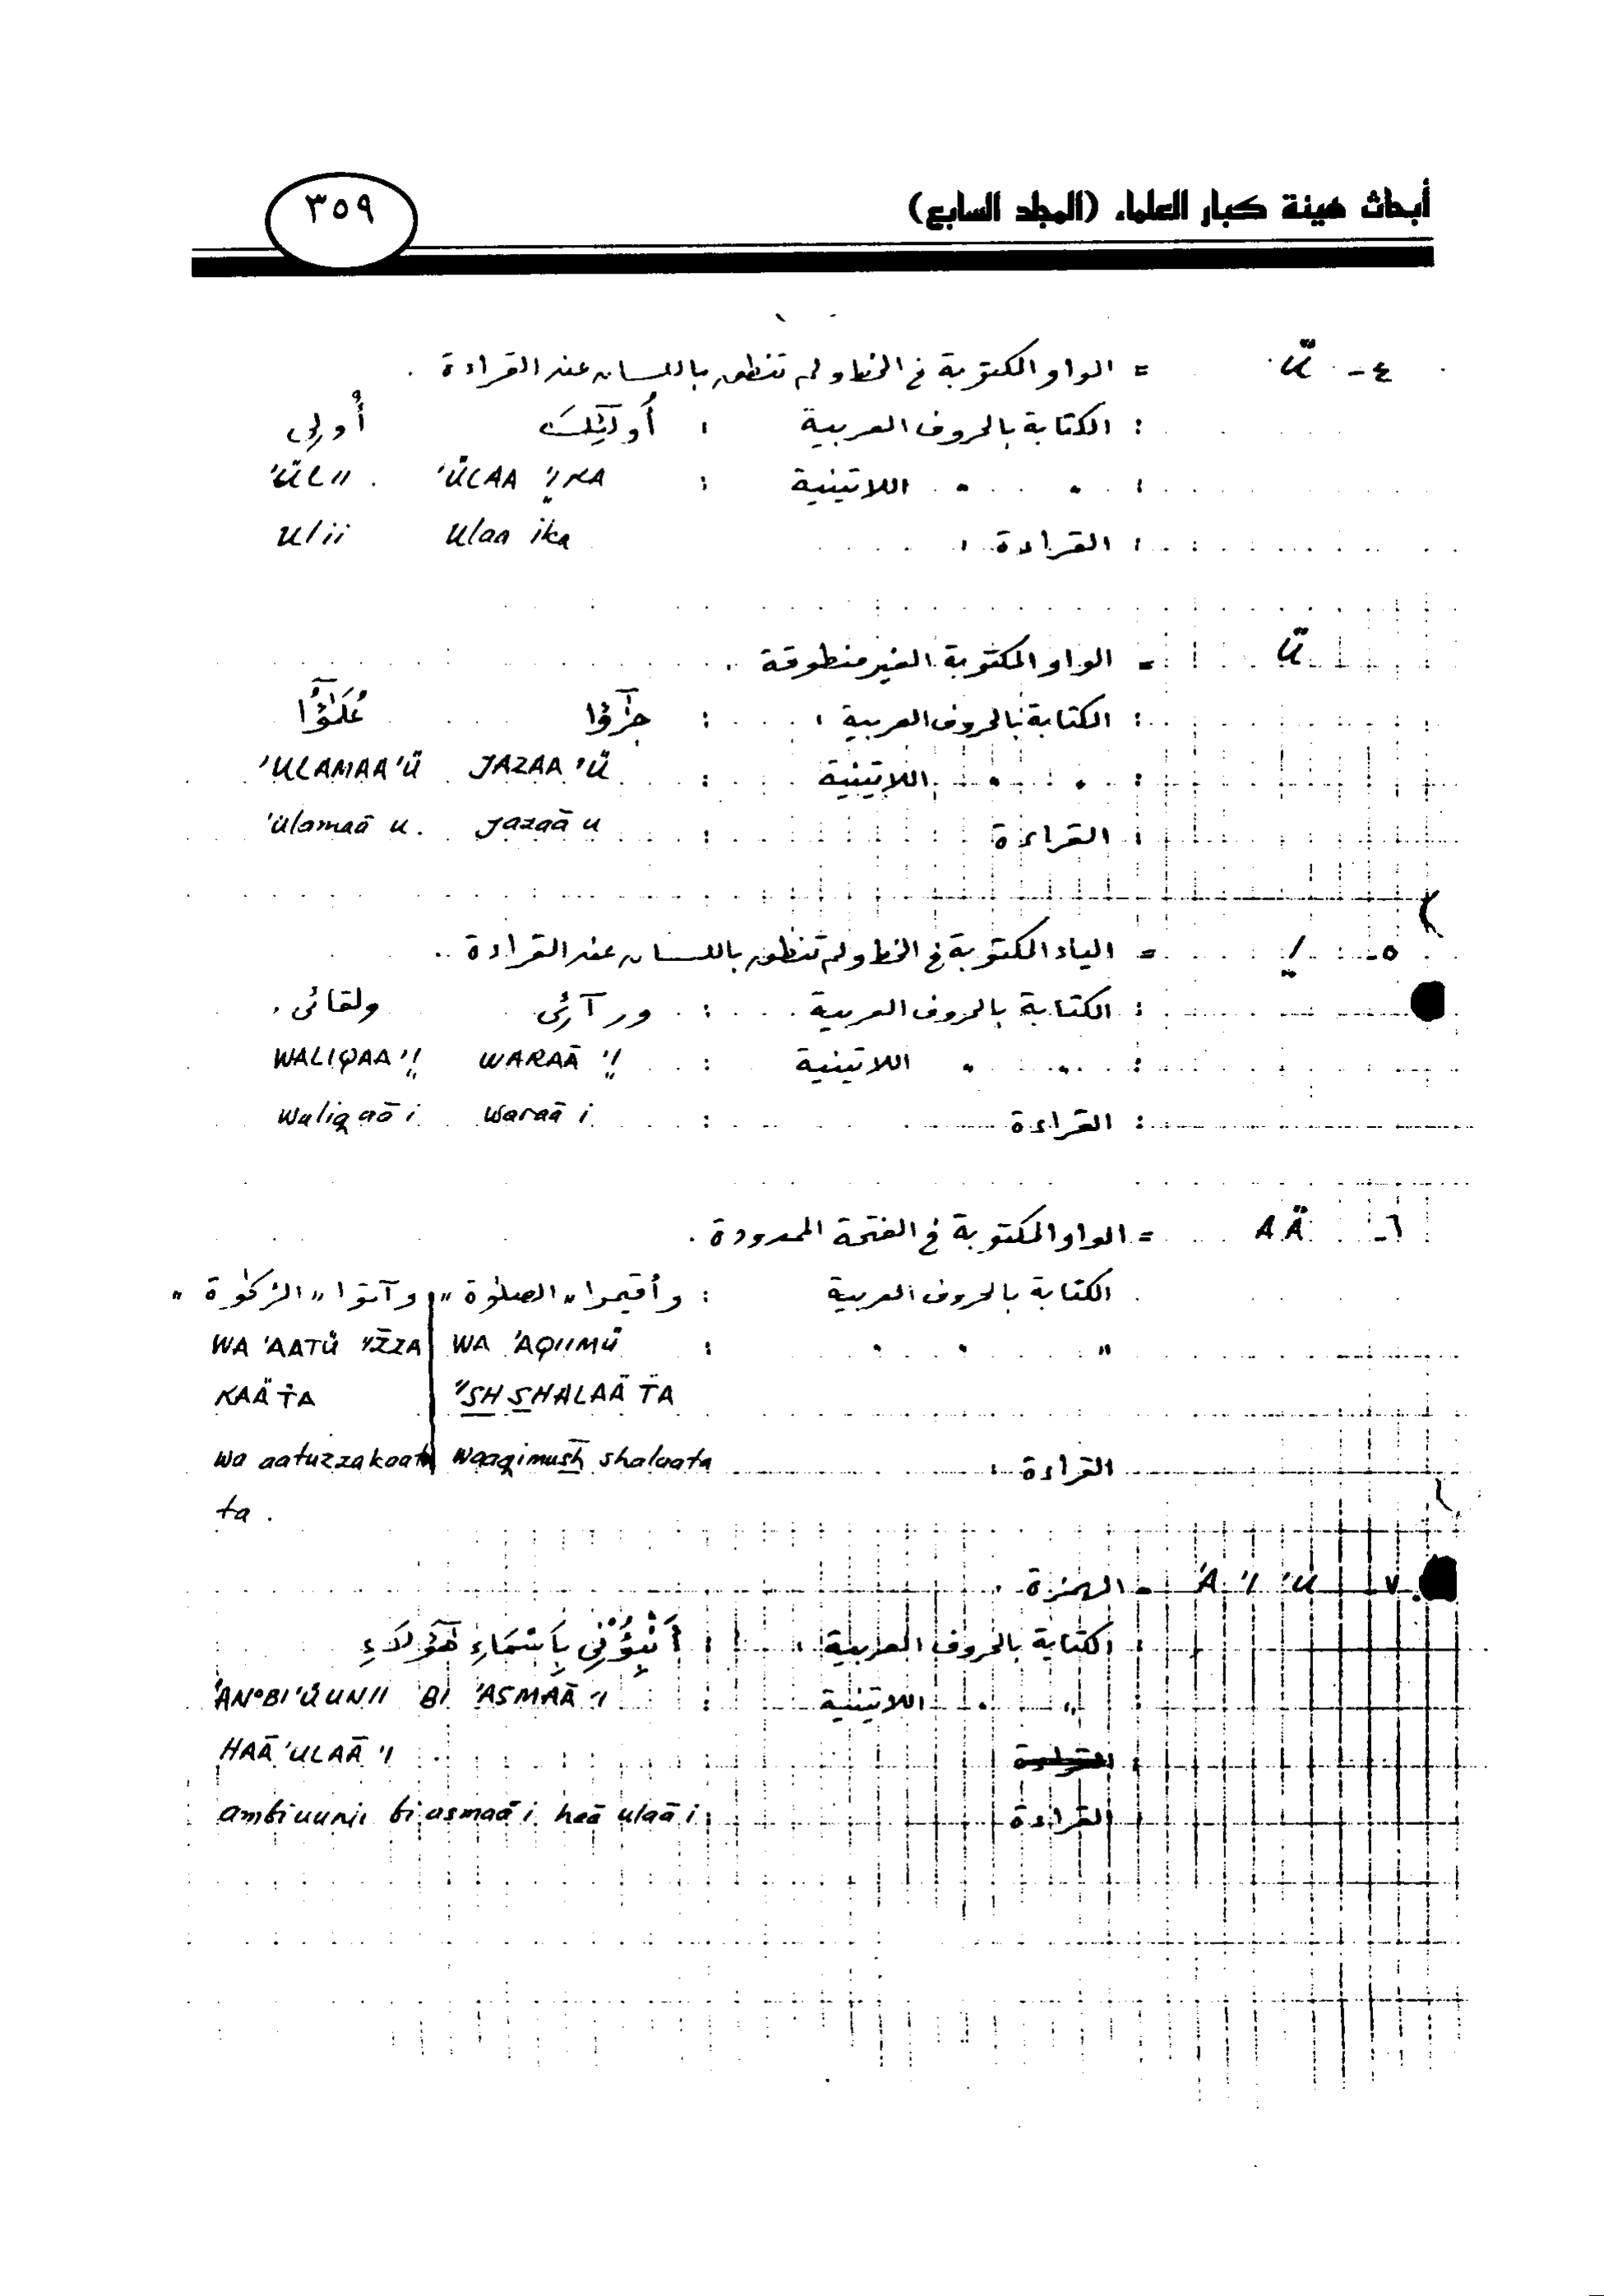 أبحاث هيئة كبار العلماء (المجلد السابع)
٣٥٩
٤- Ü = الواو المكتوبة في الخط ولم تنطق باللسان عند القراءة .
: الكتابة بالحروف العربية : أُولَٰٓئِكَ أُولِى
: " " اللاتينية : 'ÜLAA 'ÏKA 'ÜLII .
: القراءة : Ulaa ika Ulii
Ü = الواو المكتوبة الغير منطوقة .
: الكتابة بالحروف العربية : جزآؤا عُلَمَآؤُا
: " " اللاتينية : JAZAA 'Ü 'ULAMAA'Ü
: القراءة : Jazaā u 'ülamaā u .
٥- = الياء المكتوبة في الخط ولم تنطق باللسان عند القراءة .
: الكتابة بالحروف العربية : ورآئ ولقائ .
: " " اللاتينية : WARAĀ '! WALIQAA'!
: القراءة : Waraā i Waliqaā i
٦- AÄ = الواو المكتوبة في الفتحة الممدودة .
الكتابة بالحروف العربية : وأقيموا "الصلوٰة" وآتوا "الزكوٰة"
" " " : WA 'AQIIMÜ WA 'AATÜ "ZZA
"SH SHALAÄ ṪA KAÄ ṪA
القراءة : Waaqimush shalaata wa aatuzzakaata
ta .
٧- 'A 'I 'U = الهمزة .
: الكتابة بالحروف العربية : أَنْبِؤُنِي بِأَسْمَاءِ هَٰٓؤُلَاءِ
: " " اللاتينية : 'AN°BI'ÜUNII BI 'ASMAĀ 'I
HAĀ 'ULAĀ 'I
: القراءة : ambiuunii bi asmaā i haā ulaā i